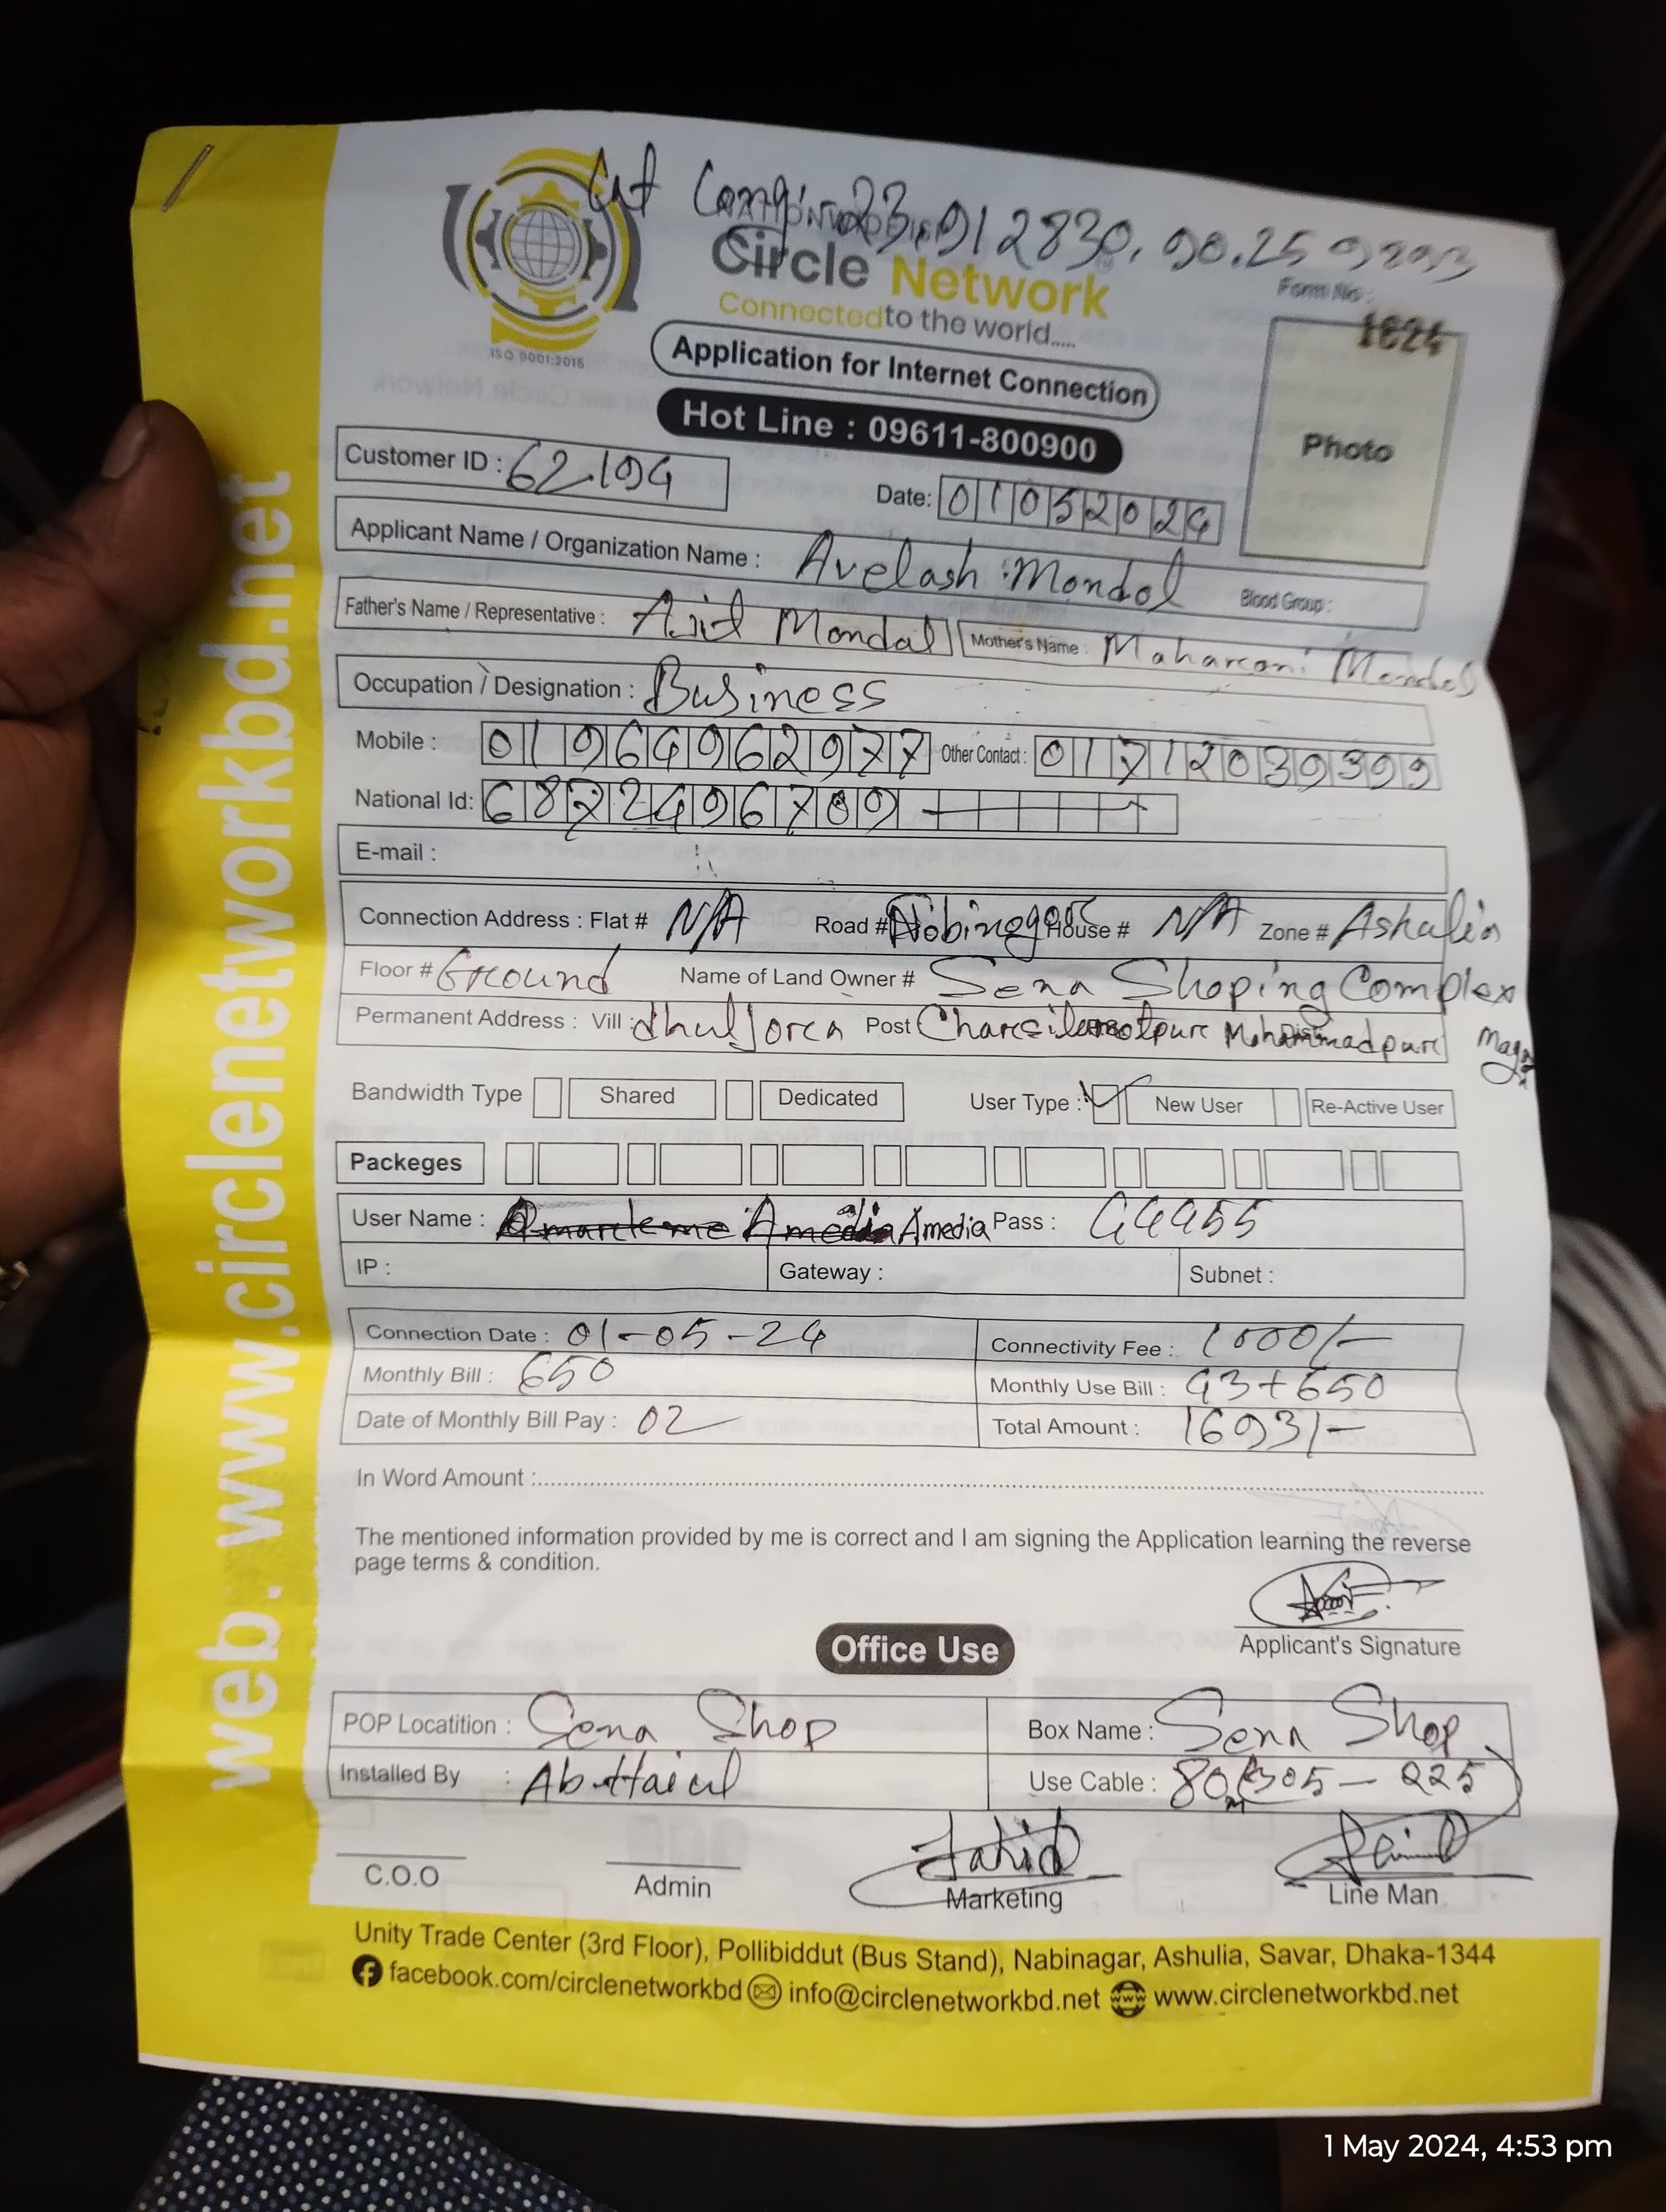 Circle Network
Connected to the world.....
ISO 9001:2015
Form No :
1824
Application for Internet Connection
Hot Line : 09611-800900
Photo
Customer ID : 62194
Date: 01052024
Applicant Name / Organization Name : Avelash Mondol Blood Group :
Father's Name / Representative : Ajit Mondal Mother's Name : Maharani Mondol
Occupation / Designation : Business
Mobile : 01964962977 Other Contact : 01712039399
National Id: 6872496789
E-mail :
Connection Address : Flat # N/A Road # Nobinogor House # N/A Zone # Ashulia
Floor # Ground Name of Land Owner # Sena Shoping Complex
Permanent Address : Vill : dhuljora Post Mohammadpur
Bandwidth Type Shared Dedicated User Type : New User Re-Active User
Packeges
User Name : Amedia Pass : 44455
IP : Gateway : Subnet :
Connection Date : 01-05-24 Connectivity Fee : 1000/-
Monthly Bill : 650 Monthly Use Bill : 43+650
Date of Monthly Bill Pay : 02 Total Amount : 1693/-
In Word Amount :
The mentioned information provided by me is correct and I am signing the Application learning the reverse
page terms & condition.
Applicant's Signature
Office Use
POP Locatition : Sena Shop Box Name : Sena Shop
Installed By : Use Cable : 80
C.O.O Admin Marketing Line Man
Unity Trade Center (3rd Floor), Pollibiddut (Bus Stand), Nabinagar, Ashulia, Savar, Dhaka-1344
facebook.com/circlenetworkbd info@circlenetworkbd.net www.circlenetworkbd.net
web: www.circlenetworkbd.net
1 May 2024, 4:53 pm